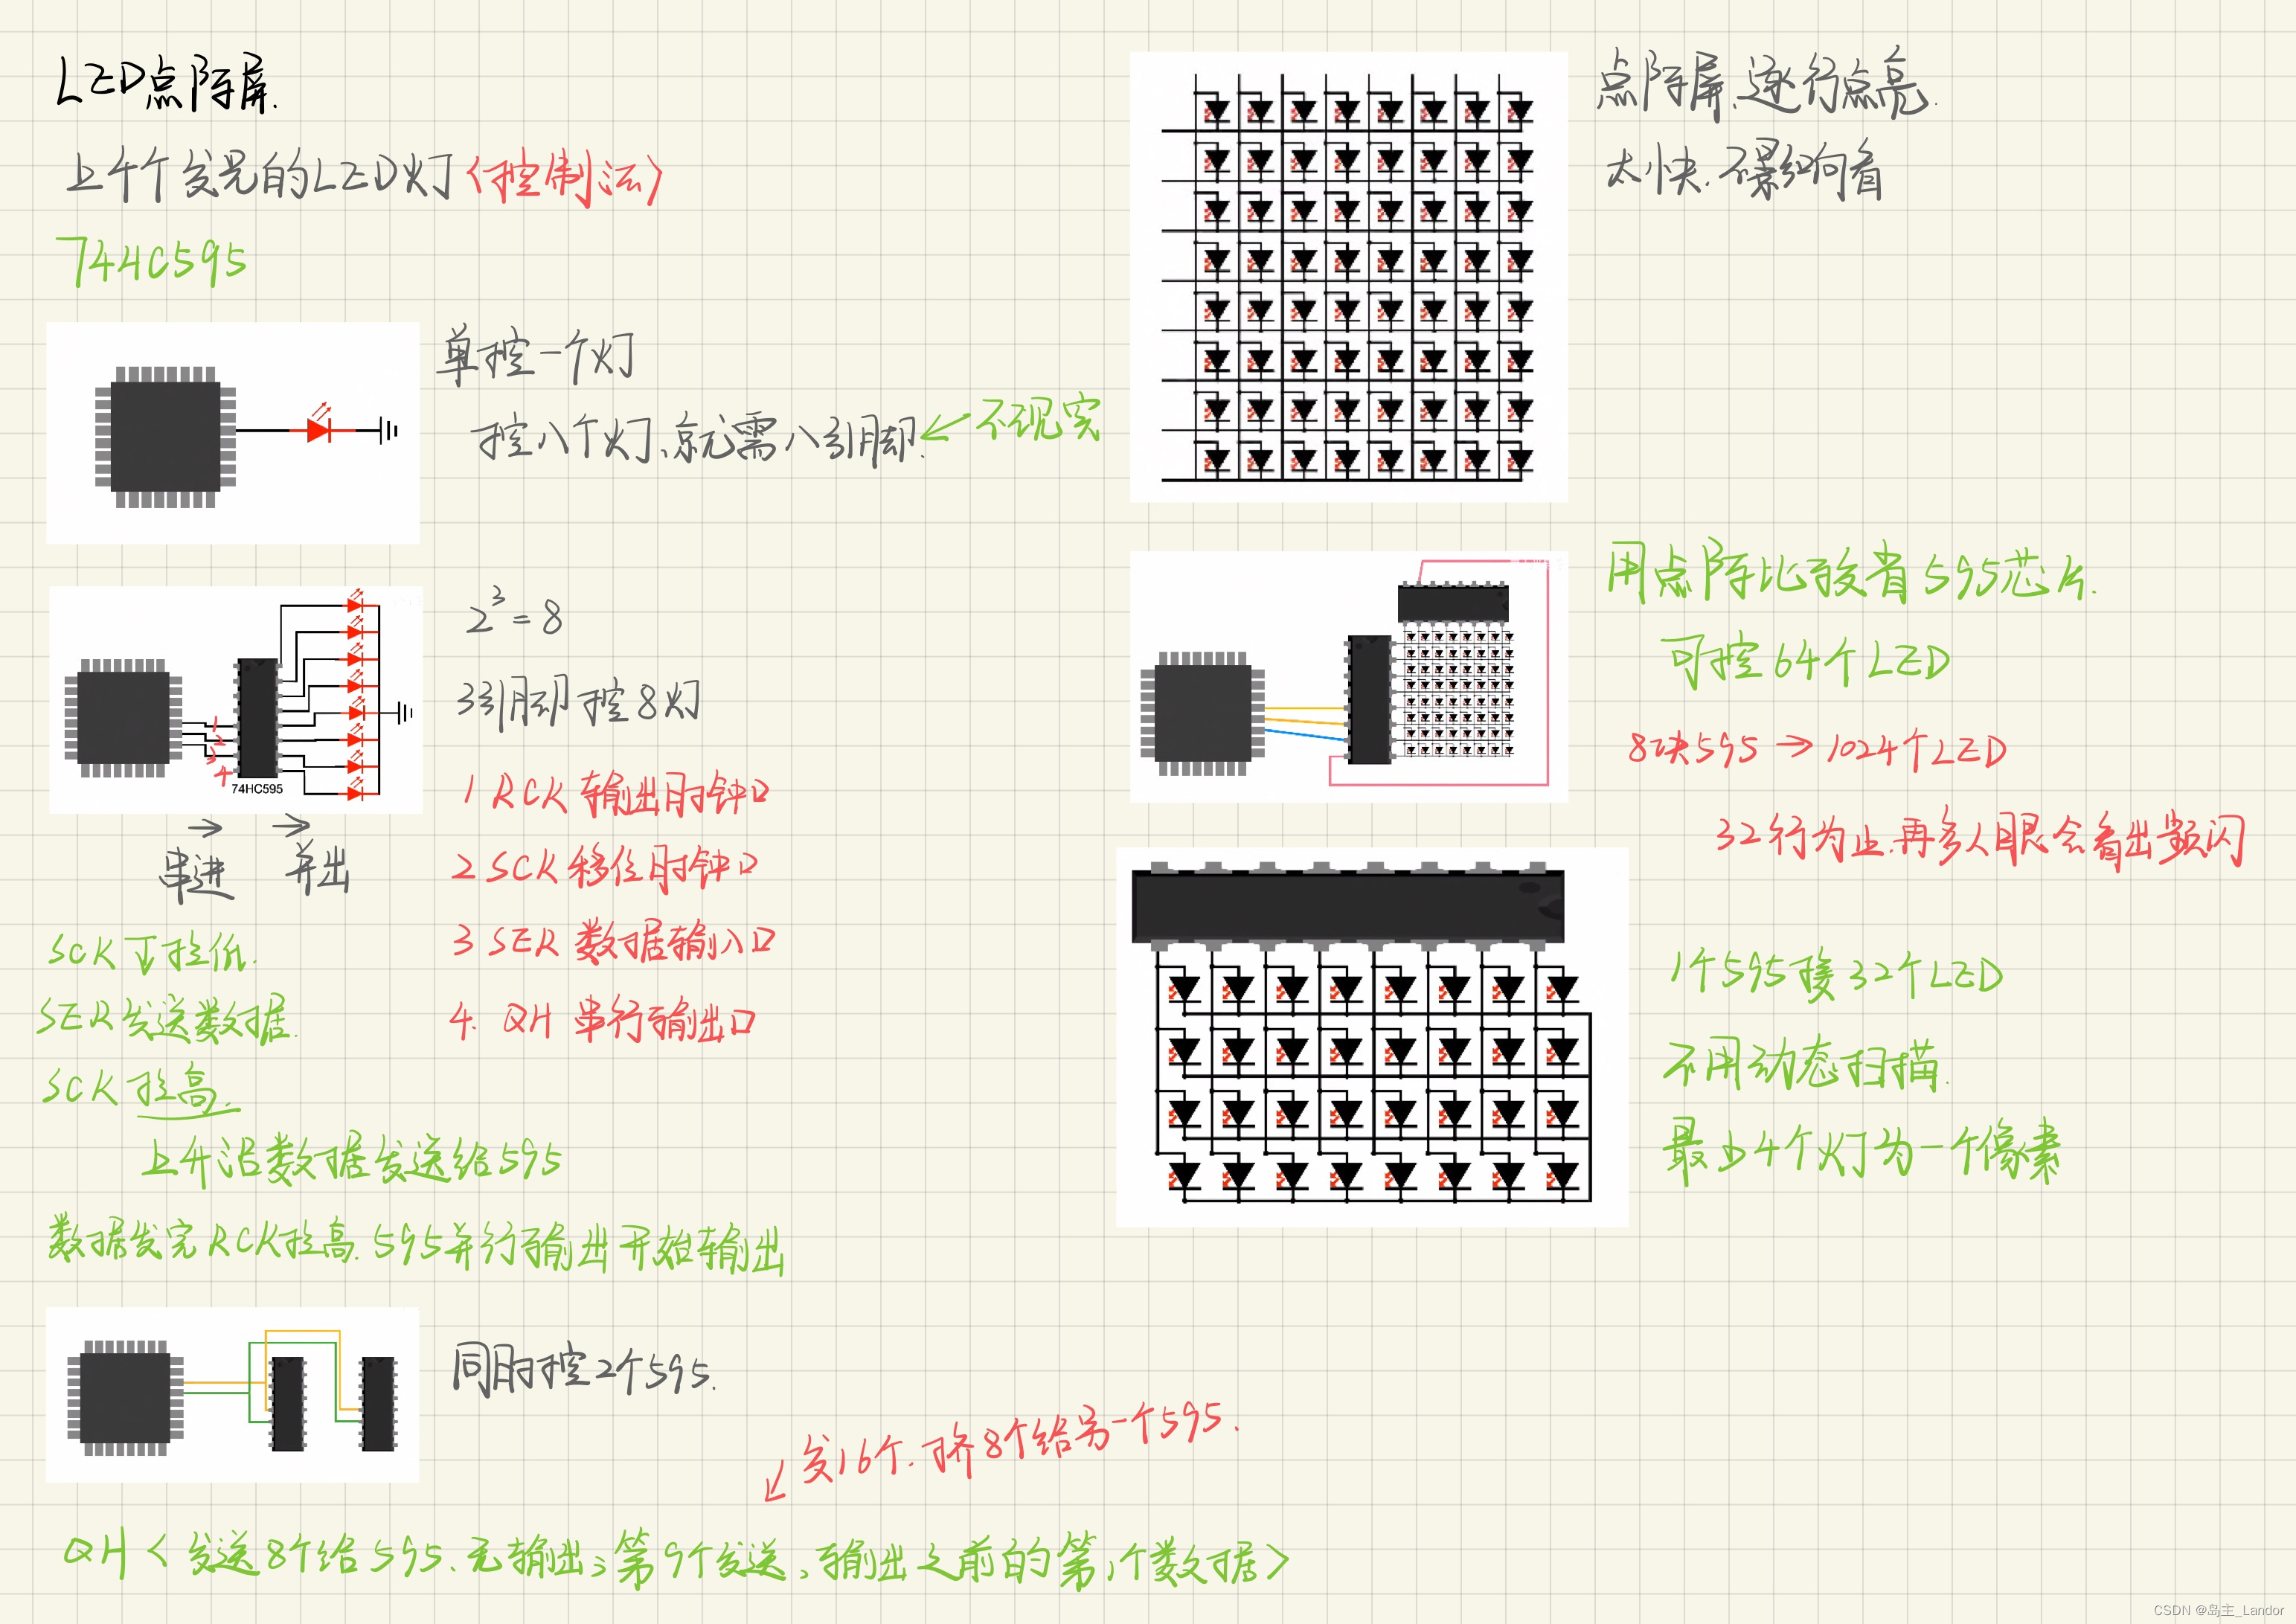 LED点阵屏.
上千个发光的LED灯〈控制法〉
74HC595
单控一个灯
控八个灯、就需八引脚.
不现实
2³=8
3引脚控8灯
1
2
3
4
74HC595
串进
并出
1 RCK 输出时钟口
2 SCK 移位时钟口
3 SER 数据输入口
4. QH 串行输出口
SCK 拉低.
SER发送数据.
SCK 拉高.
上升沿数据发送给595
数据发完RCK拉高.595并行输出开始输出
同时控2个595.
发16个.挤8个给另一个595.
QH〈发送8个给595、无输出；第9个发送、输出之前的第1个数据〉
点阵屏、逐行点亮.
太快.不影响看
用点阵比较省595芯片.
可控64个LED
8块595→1024个LED
32行为止.再多人眼会看出频闪
1个595接32个LED
不用动态扫描.
最少4个灯为一个像素
CSDN @岛主_Landor